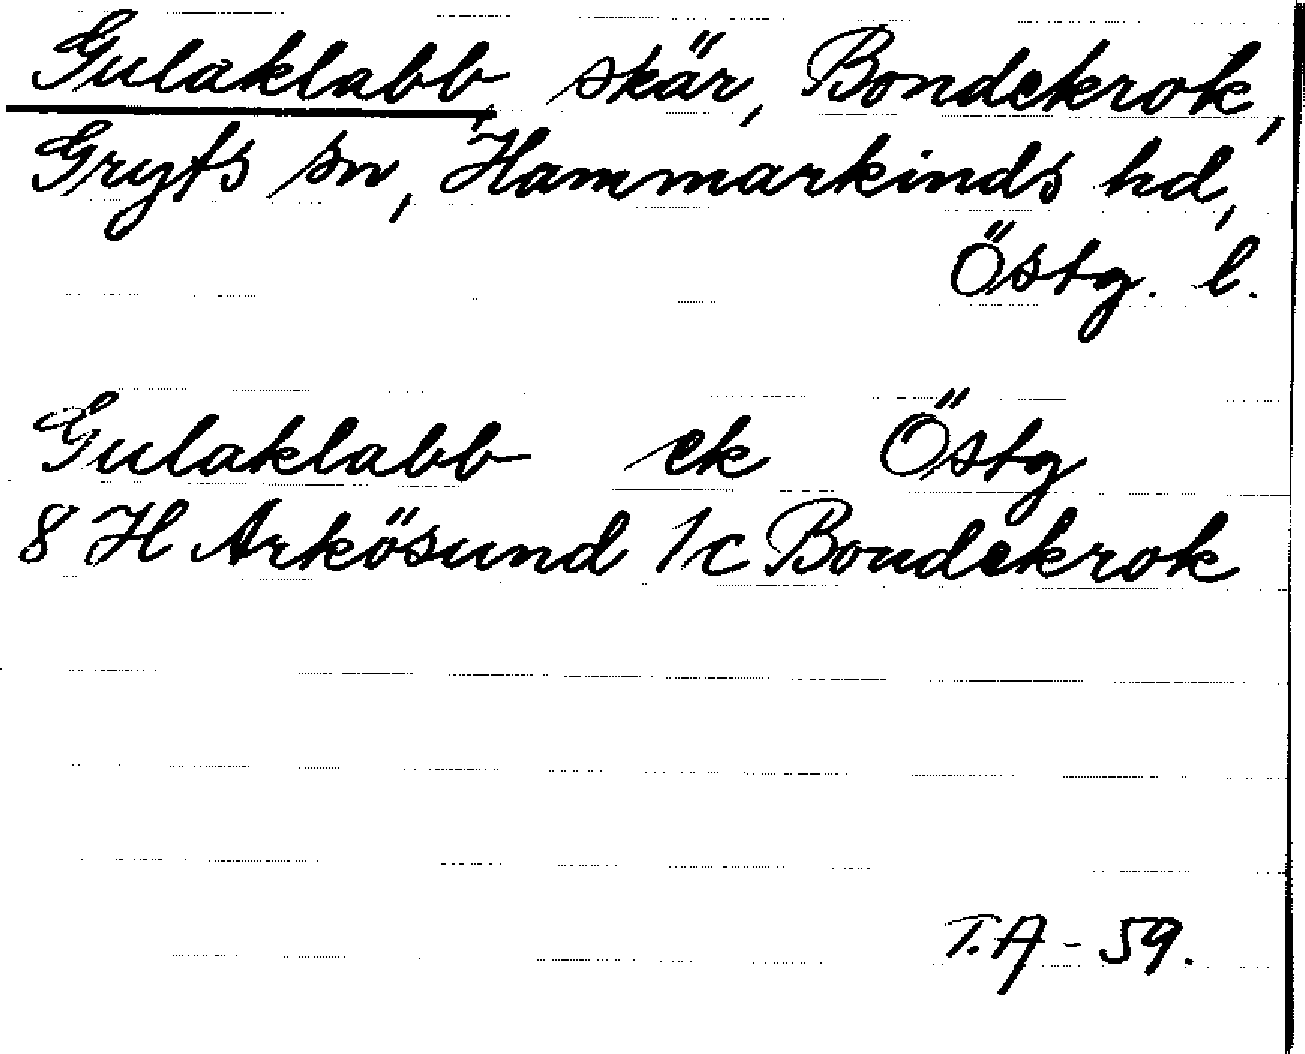 Gulaklabb, skär, Bondekrok,
Gryts sn, Hammarkinds hd,
Östg. l.
Gulaklabb ek Östg
8 H Arkösund 1c Bondekrok
T.A - 59.